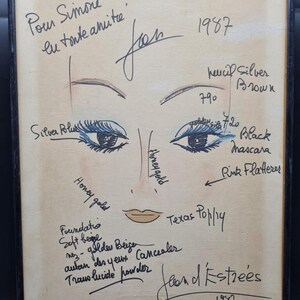 Pour Simone
en toute amitié
Jean
1987
pencil Silver
Brown
790
720
Silver Blue
Black
mascara
Honeygold
Pink Flatterer
Honey gold
Texas Poppy
Foundation
Soft beige
nez - golden Beige
autour des yeux Concealer
Translucide powder
Jean d'Estrées
1987